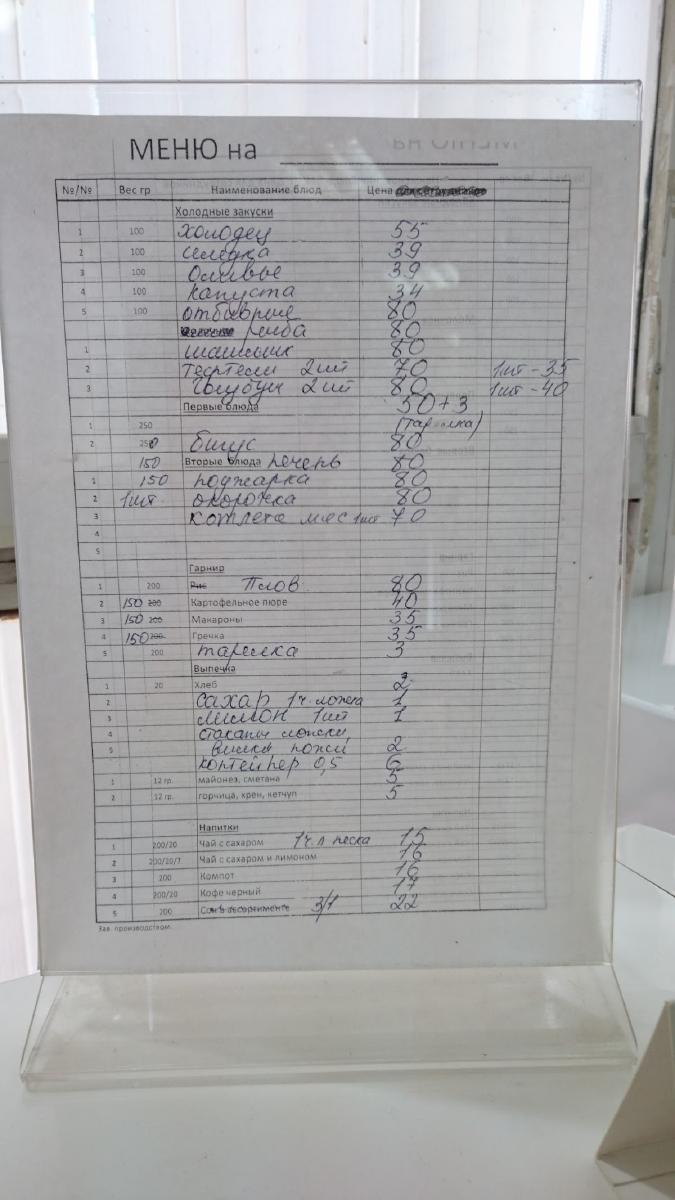 МЕНЮ на
№/№ Вес гр Наименование блюд Цена
Холодные закуски
1 100 холодец 55
2 100 селедка 39
3 100 оливье 39
4 100 капуста 34
5 100 отбивные 80
рыба 80
1 шашлык 80
2 тефтели 2 шт 70 1шт-35
3 Голубцы 2 шт 80 1шт-40
Первые блюда 50+3
1 250 (тарелка)
2 250 бигус 80
150 Вторые блюда печень 80
1 150 поджарка 80
2 1шт. окорочка 80
3 котлета мяс 1шт 70
4
5
Гарнир
1 200 Рис Плов 80
2 150 200 Картофельное пюре 40
3 150 200 Макароны 35
4 150 200 Гречка 35
5 200 тарелка 3
Выпечка
1 20 Хлеб 2
2 сахар 1 ч. ложка 1
3 лимон 1шт 1
4 стаканы ложки,
5 вилки ножи 2
контейнер 0,5 6
1 12 гр. майонез, сметана 5
2 12 гр. горчица, хрен, кетчуп 5
Напитки
1 200/20 Чай с сахаром 1 ч. л песка 15
2 200/20/7 Чай с сахаром и лимоном 16
3 200 Компот 16
4 200/20 Кофе черный 17
5 200 Сок в ассортименте 3/1 22
Зав. производством.